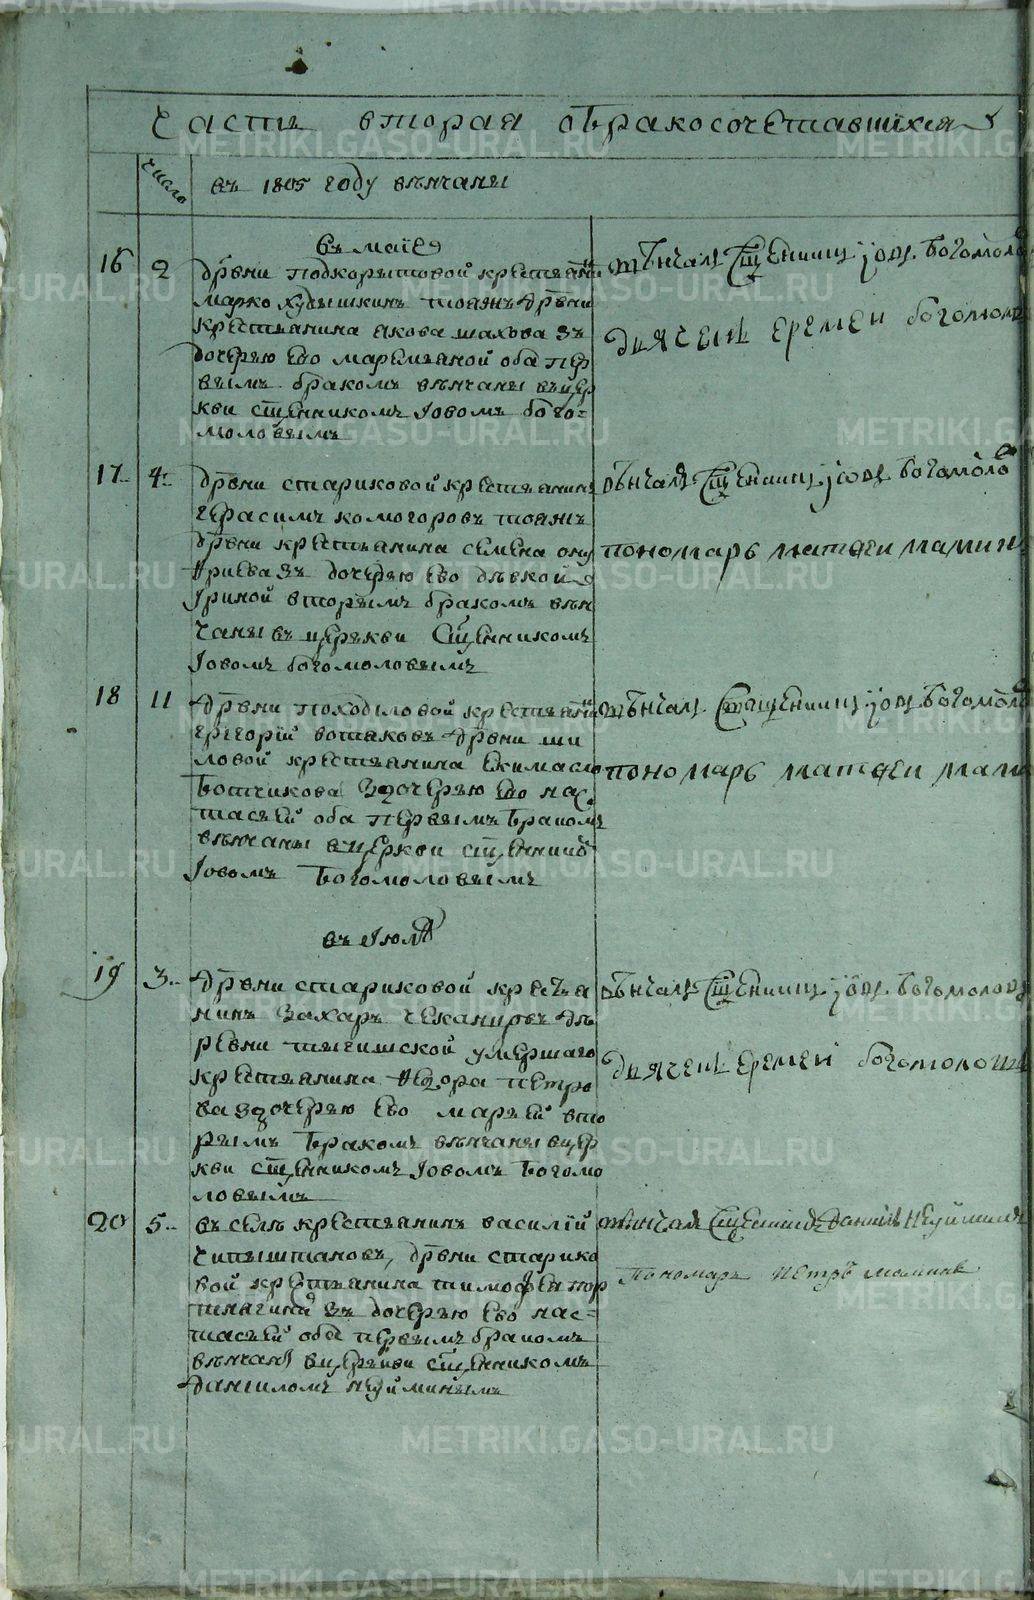 Часть вторая о бракосочетавшихся
число
въ 1805 году вѣнчаны
въ маіѣ
16 2 дрвни подкорытовой крестьянинъ
марко худышкинъ тояжъ дрвни
крестьянина якова шахова зъ
дочерью ево маремьяной оба пер
вымъ бракомъ вѣнчаны въ цер
кви сщенникомъ Іовомъ бого-
моловымъ
вѣнчалъ Сщенникъ іовъ Богомоловъ
дьячекъ еремеи богомоловъ
17 4 дрвни стариковой крестьянинъ
герасимъ комогоровъ тояжъ
дрвни крестьянина семена ону
фриева зъ дочерью ево дѣвкой
Іриной вторымъ бракомъ вѣн
чаны въ церькви Сщенникомъ
Іовомъ богомоловымъ
вѣнчалъ Сщенникъ іовъ Богомоловъ
пономарь матфеи мамин
18 11 дрвни походиловой крестьянинъ
григорій вотяковъ дрвни ши
ловой крестьянина екима сло
ботчикова з дочерью ево нас
тасьей оба первымъ бракомъ
вѣнчаны в церкви сщенникомъ
Іовомъ Богомоловымъ
вѣнчалъ Священникъ іовъ Богомоловъ
пономарь матфеи мамин
въ Іюлѣ
19 3 дрвни стариковой крестья
нинъ Захаръ чекануровъ де
ревни тыгишской умершаго
крестьянина федора петро
ва з дочерью ево марьей вто
рымъ бракомъ вѣнчаны в цер
кви сщенникомъ Іовомъ Богомо
ловымъ
вѣнчалъ Сщенникъ іовъ Богомоловъ
дьячекъ Еремеи богомоловъ
20 5 въ селѣ крестьянинъ василій
чипыштановъ, дрвни старико
вой крестьянина тимофея пор
шнягина зъ дочерью ево нас-
тасьей оба первымъ бракомъ
вѣнчаны в церькви сщенникомъ
даниломъ неуйминымъ
вѣнчалъ Сщенникъ Данилъ Неуйминъ
Пономарь Петръ маминъ
METRIKI.GASO-URAL.RU